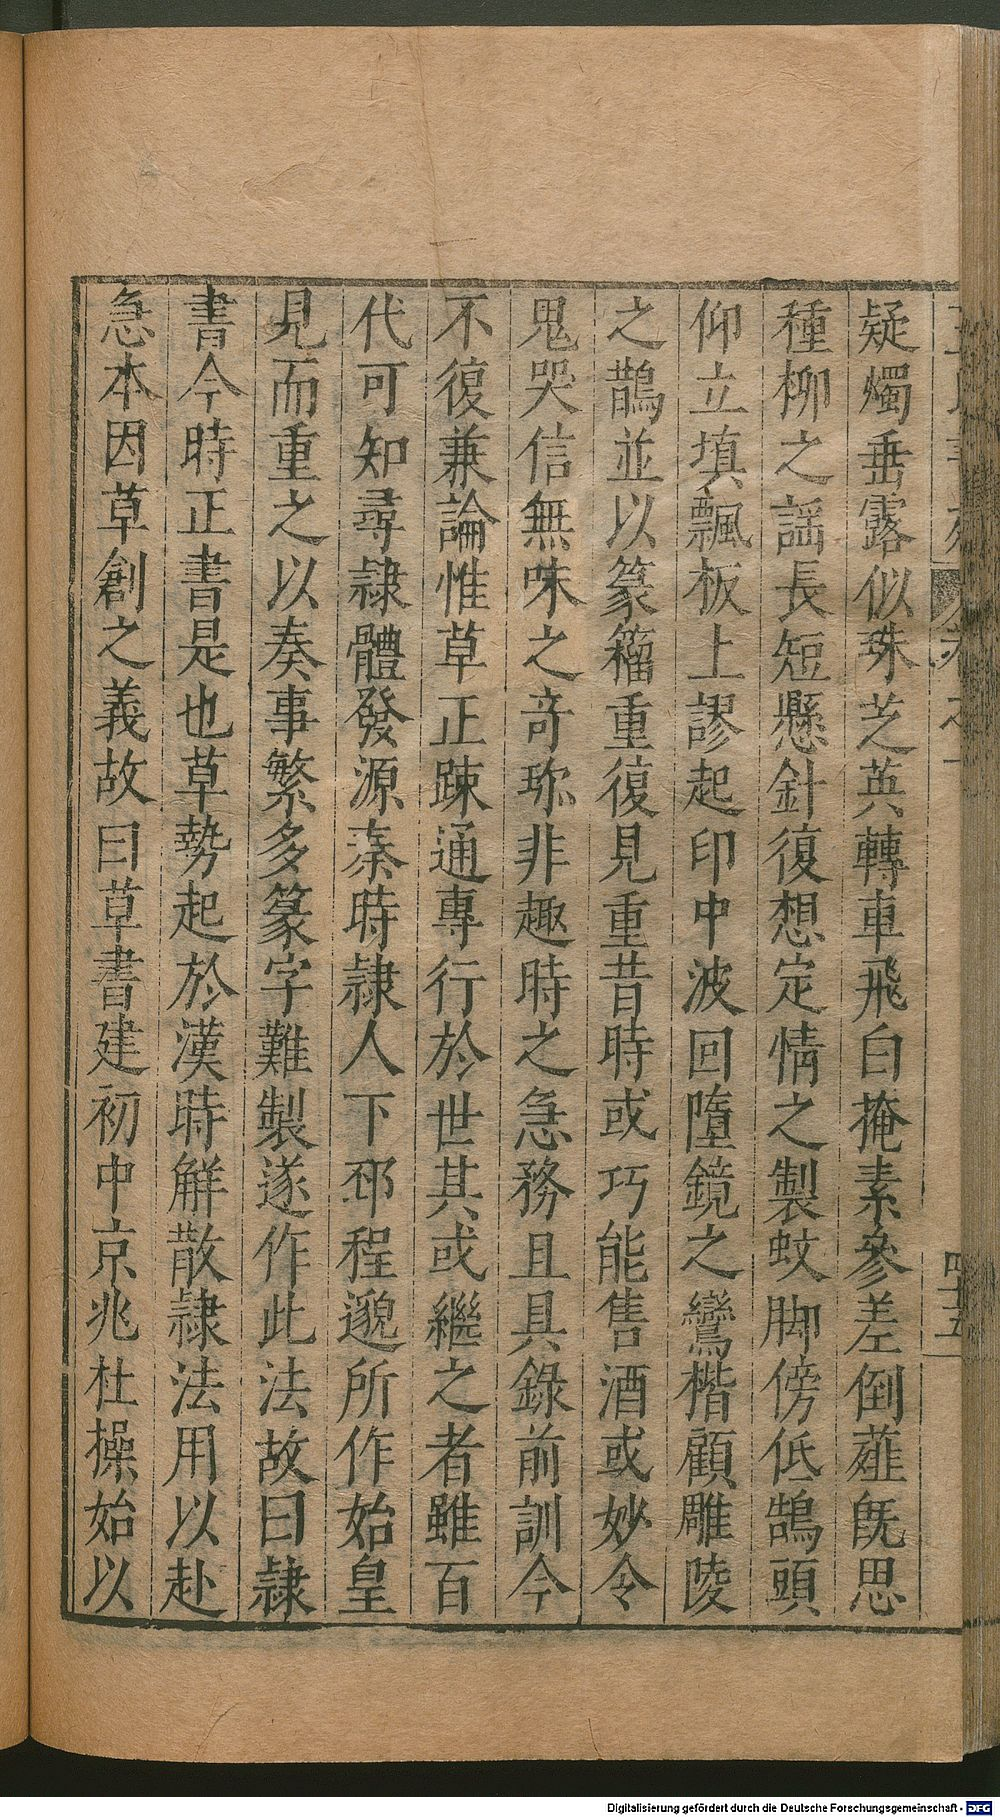 疑燭垂露似珠芝英轉車飛白掩素參差倒薤既思
種柳之謡長短懸針復想定情之製蚊脚傍低鵠頭
仰立填飄板上謬起印中波回墮鏡之鸞楷顧雕陵
之鵲並以篆籀重復見重昔時或巧能售酒或妙令
鬼哭信無味之竒珎非趣時之急務且具錄前訓今
不復兼論惟草正踈通專行於世其或繼之者雖百
代可知尋隷體發源秦時隷人下邳程邈所作始皇
見而重之以奏事繁多篆字難製遂作此法故曰隷
書今時正書是也草勢起於漢時解散隷法用以赴
急本因草創之義故曰草書建初中京兆杜操始以
四十五
Digitalisierung gefördert durch die Deutsche Forschungsgemeinschaft - DFG